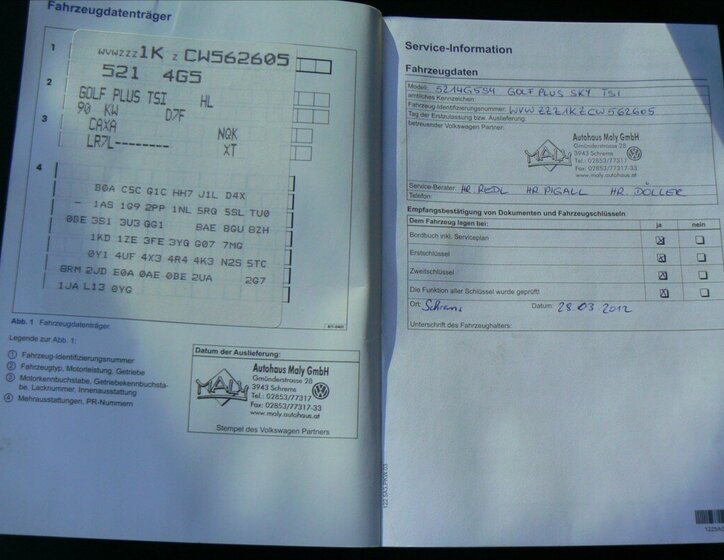 Fahrzeugdatenträger
1
WVWZZZ1K Z CW562605
521 4G5
2
GOLF PLUS TSI HL
90 KW D7F
3
CAXA NQK
LR7L--------- XT
4
B0A C5C G1C HH7 J1L D4X
- 1AS 1G9 2PP 1NL 5RG 5SL TU0
0BE 3S1 3U3 GG1 BAE 8GU 8ZH
1KD 1ZE 3FE 3YG G07 7MG
0Y1 4UF 4X3 4R4 4K3 N2S 5TC
8RM 2JD E0A 0AE 0BE 2UA 2G7
1JA L13 0YG
Abb. 1 Fahrzeugdatenträger.
Legende zur Abb. 1:
1 Fahrzeug-Identifizierungsnummer
2 Fahrzeugtyp, Motorleistung, Getriebe
3 Motorkennbuchstabe, Getriebekennbuchsta-
be, Lacknummer, Innenausstattung
4 Mehrausstattungen, PR-Nummern
Datum der Auslieferung:
Autohaus Maly GmbH
Gmünderstrasse 28
3943 Schrems
Tel.: 02853/77317
Fax: 02853/77317-33
www.maly.autohaus.at
MALY
Stempel des Volkswagen Partners
Service-Information
Fahrzeugdaten
Modell: 5214G5S4 GOLF PLUS SKY TSI
amtliches Kennzeichen:
Fahrzeug-Identifizierungsnummer: WVWZZZ1KZCW562605
Tag der Erstzulassung bzw. Auslieferung:
betreuender Volkswagen Partner:
Autohaus Maly GmbH
Gmünderstrasse 28
3943 Schrems
Tel.: 02853/77317
Fax: 02853/77317-33
www.maly.autohaus.at
MALY
Service-Berater: HR. REDL HR. PIGALL HR. DÖLLER
Telefon:
Empfangsbestätigung von Dokumenten und Fahrzeugschlüsseln
Dem Fahrzeug liegen bei: ja nein
Bordbuch inkl. Serviceplan
Erstschlüssel
Zweitschlüssel
Die Funktion aller Schlüssel wurde geprüft!
Ort: Schrems Datum: 28.03.2012
Unterschrift des Fahrzeughalters: